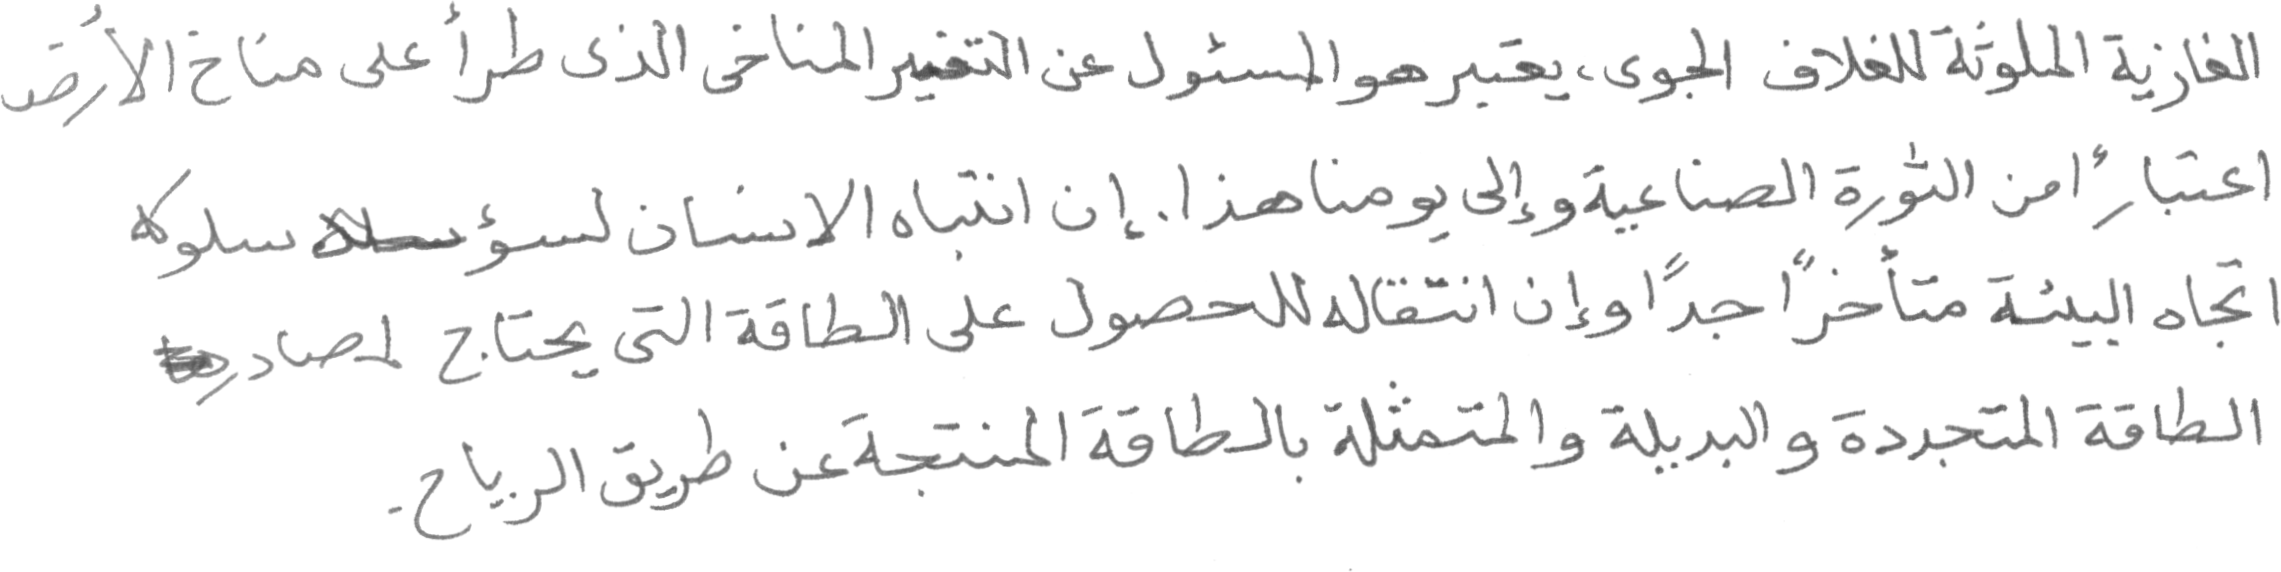 الغازية الملوثة للغلاف الجوى، يعتبر هو المسئول عن التغيير المناخى الذى طرأ على مناخ الأرض
اعتبارًا من الثورة الصناعية وإلى يومنا هذا. إن انتباه الانسان لسؤ سلوكه
اتجاه البيئة متأخرًا جدًا وإن انتقاله للحصول على الطاقة التى يحتاج لمصادر
الطاقة المتجددة والبديلة والمتمثلة بالطاقة المنتجة عن طريق الرياح.